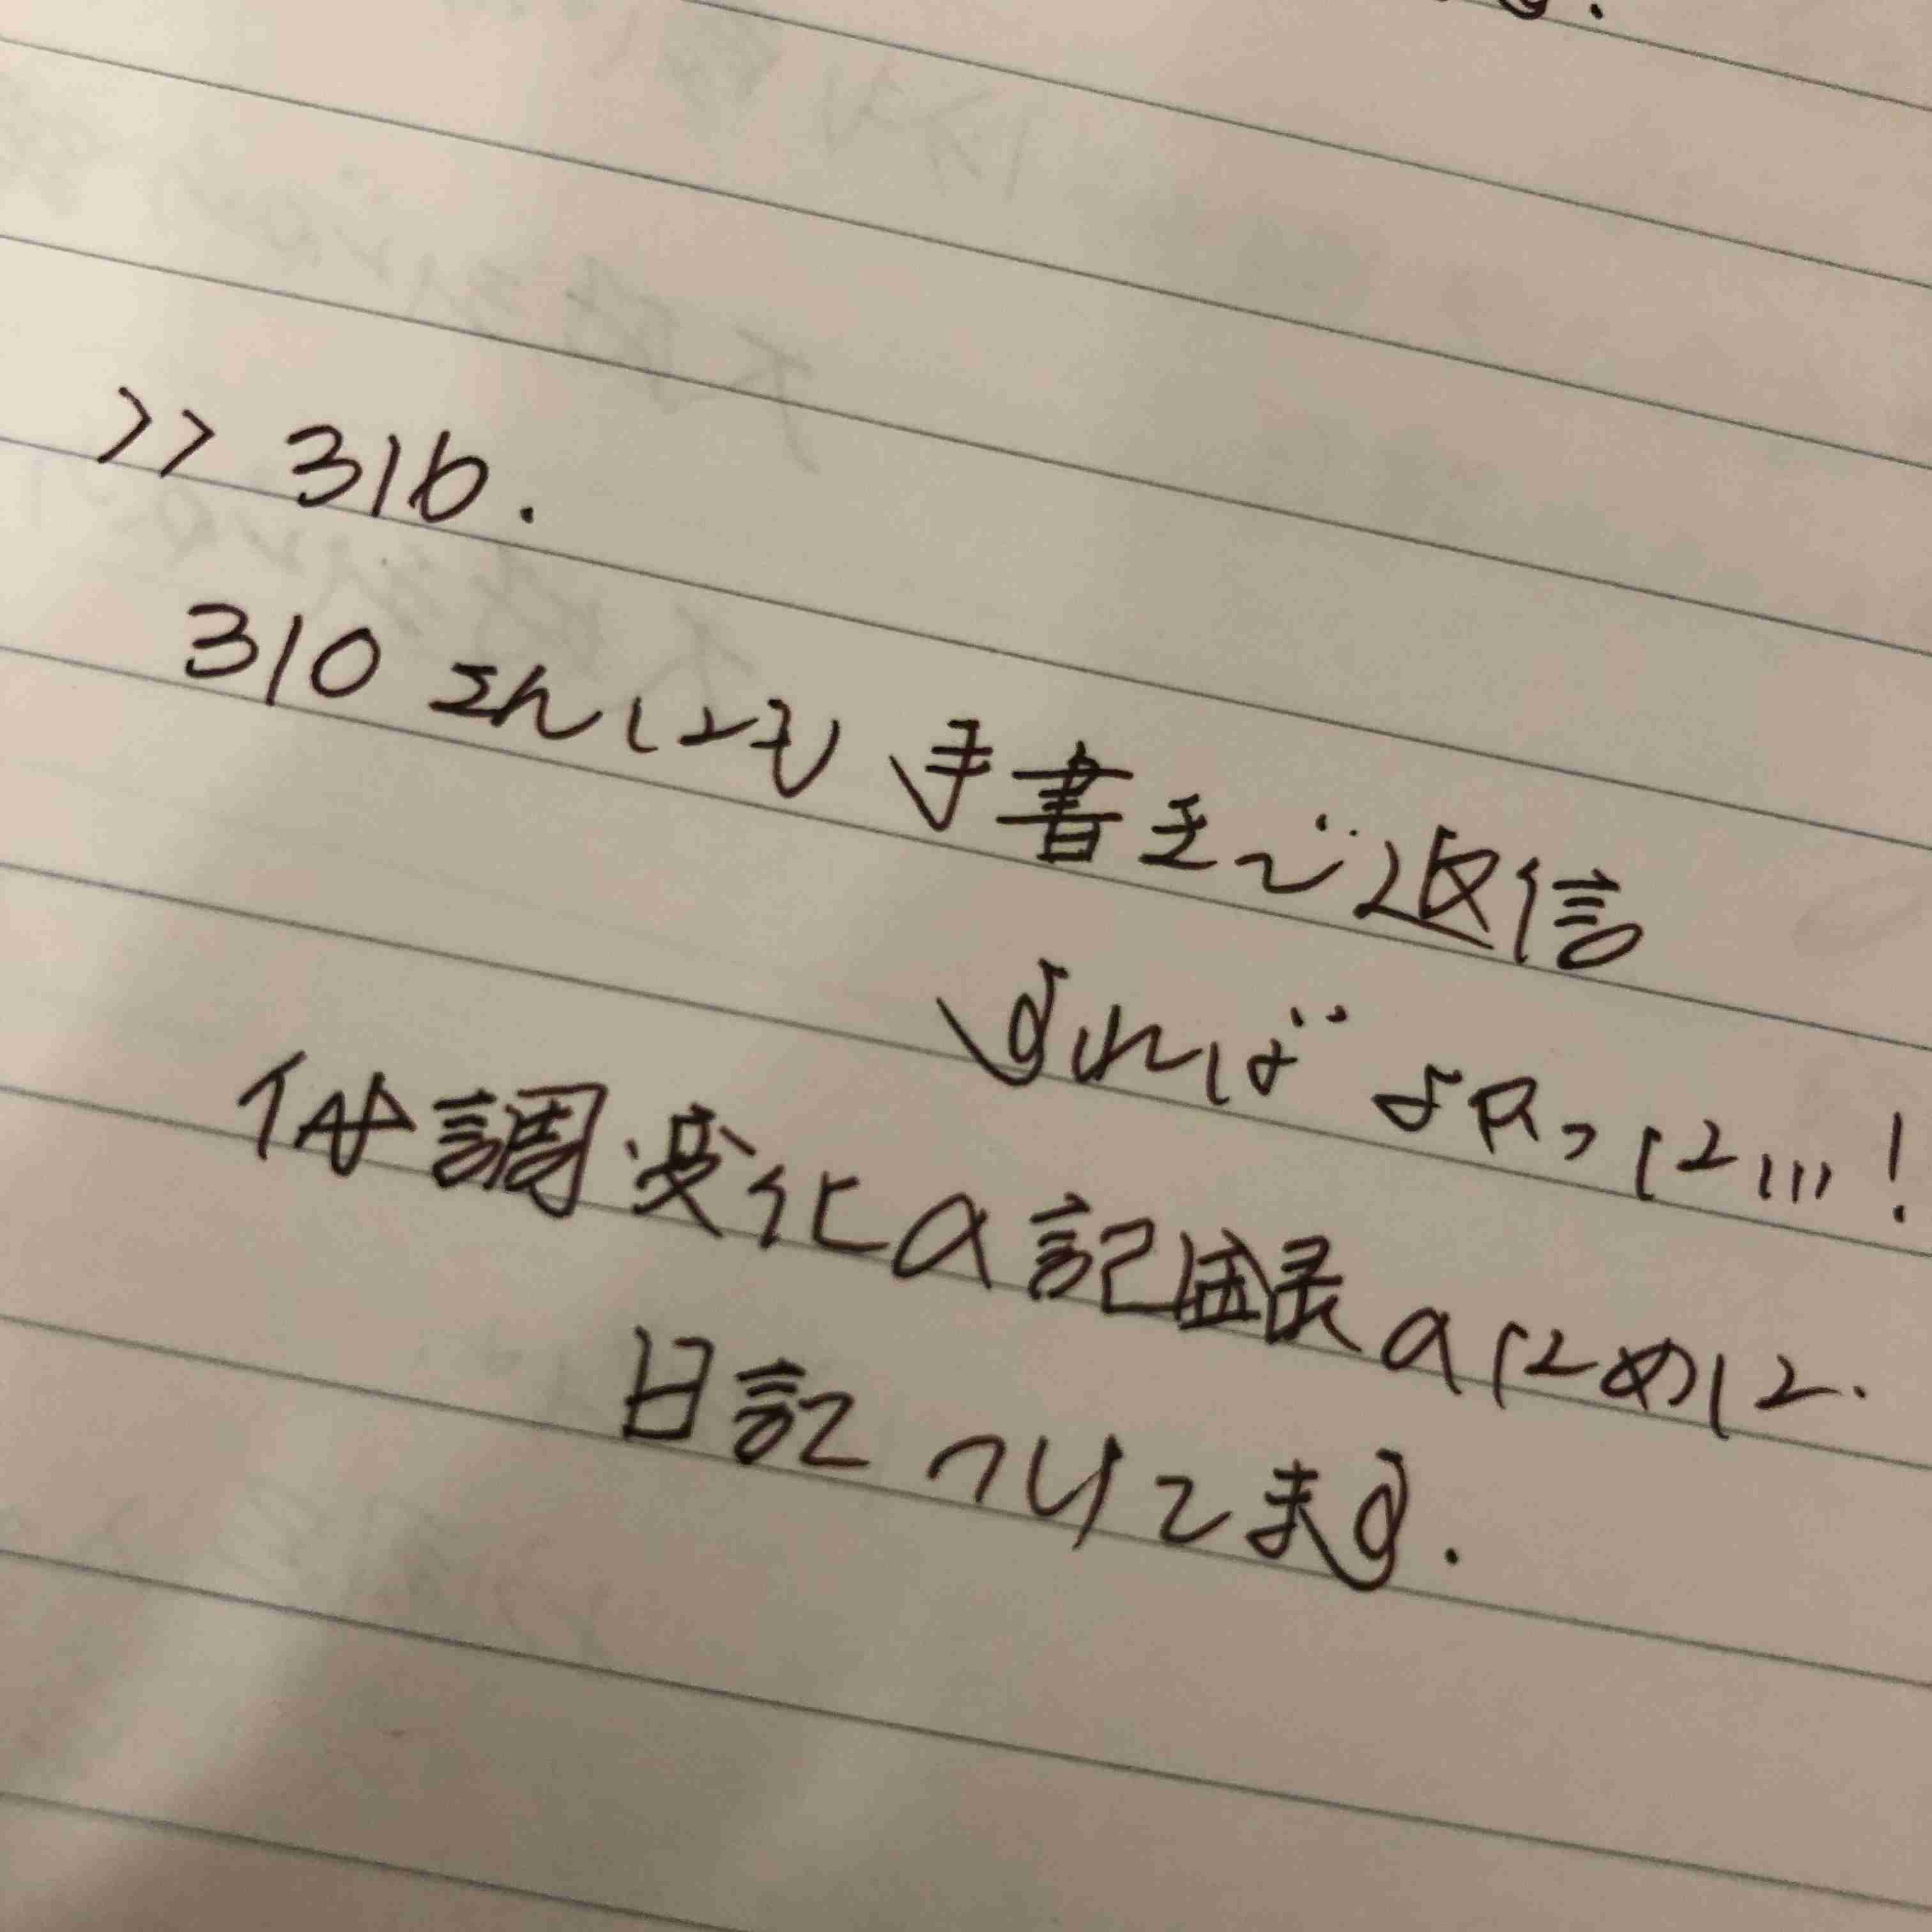 >> 316.
310さんにも手書きで返信
すればよかった…!
体調変化の記録のために.
日記つけてます.